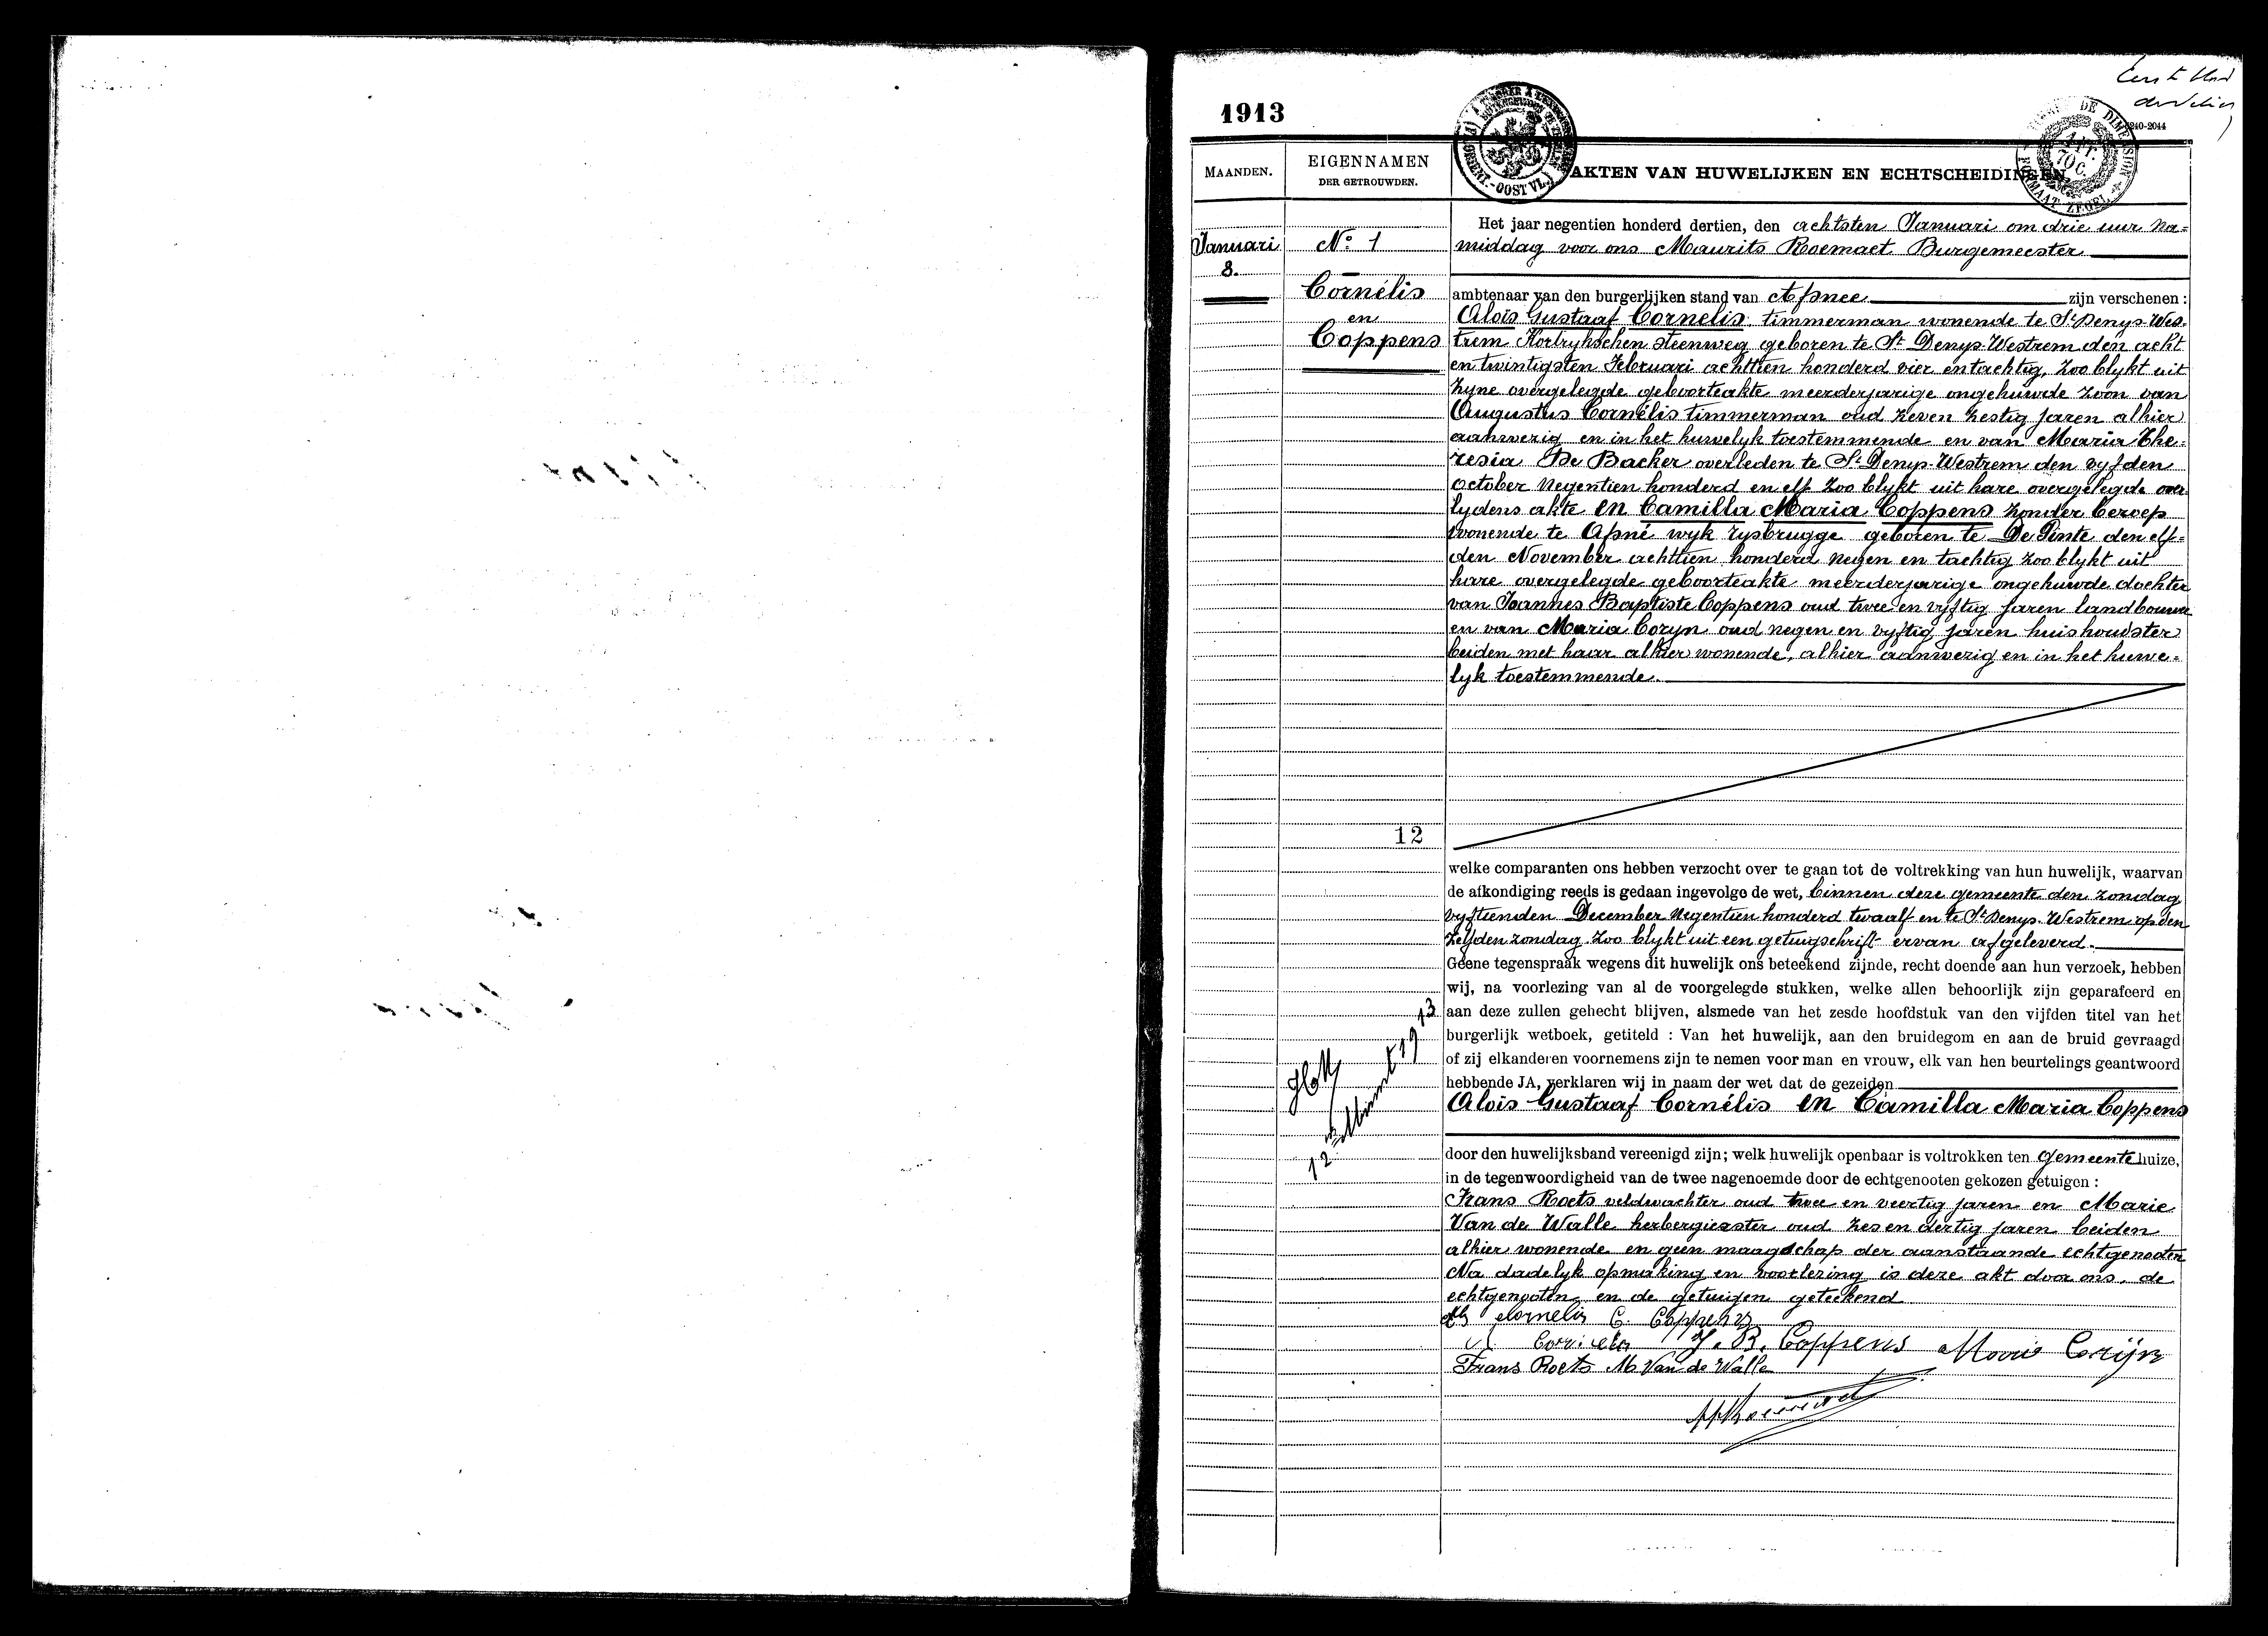 1913
240-2044
MAANDEN.
EIGENNAMEN
DER GETROUWDEN.
AKTEN VAN HUWELIJKEN EN ECHTSCHEIDINGEN
Januari
8.
No 1
Cornélis
en
Coppens
Het jaar negentien honderd dertien, den achtsten Januari om drie uur na=
middag voor ons Maurits Roemaet Burgemeester
ambtenaar van den burgerlijken stand van Afsnee zijn verschenen :
Aloïs Gustaaf Cornelis timmerman wonende te St Denys-Wes.
trem Kortrykschen steenweg geboren te St Denys-Westrem den acht
en twintigsten Februari achttien honderd vier en tachtig, zoo blykt uit
zyne overgelegde geboorteakte meerderjarige ongehuwde zoon van
Augustus Cornélis timmerman oud zeven zestig jaren alhier
aanwezig en in het huwelyk toestemmende en van Maria The=
resia De Backer overleden te St Denys-Westrem den vyfden
October negentien honderd en elf zoo blykt uit hare overgelegde over
lydens akte en Camilla Maria Coppens zonder beroep
wonende te Afsné wyk rysbrugge geboren te De Pinte den elf=
den November achttien honderd negen en tachtig zoo blykt uit
hare overgelegde geboorteakte meerderjarige ongehuwde dochter
van Joannes Baptiste Coppens oud twee en vyftig jaren landbouwer
en van Maria Coryn oud negen en vyftig jaren huishoudster
beiden met haar alhier wonende, alhier aanwezig en in het huwe=
lyk toestemmende.
12
welke comparanten ons hebben verzocht over te gaan tot de voltrekking van hun huwelijk, waarvan
de afkondiging reeds is gedaan ingevolge de wet, binnen deze gemeente den zondag
vyftienden December negentien honderd twaalf en te St Denys-Westrem op den
zelfden zondag. zoo blykt uit een getuigschrift ervan afgeleverd.
Geene tegenspraak wegens dit huwelijk ons beteekend zijnde, recht doende aan hun verzoek, hebben
wij, na voorlezing van al de voorgelegde stukken, welke allen behoorlijk zijn geparafeerd en
aan deze zullen gehecht blijven, alsmede van het zesde hoofdstuk van den vijfden titel van het
burgerlijk wetboek, getiteld : Van het huwelijk, aan den bruidegom en aan de bruid gevraagd
of zij elkanderen voornemens zijn te nemen voor man en vrouw, elk van hen beurtelings geantwoord
hebbende JA, verklaren wij in naam der wet dat de gezeiden
Aloïs Gustaaf Cornélis en Camilla Maria Coppens
door den huwelijksband vereenigd zijn; welk huwelijk openbaar is voltrokken ten gemeentehuize,
in de tegenwoordigheid van de twee nagenoemde door de echtgenooten gekozen getuigen :
Frans Roets veldwachter oud twee en veertig jaren en Marie
Van de Walle herbergierster oud zes en dertig jaren beiden
alhier wonende en geen maagschap der aanstaande echtgenooten
Na dadelyk opmaking en voorlezing is deze akt door ons, de
echtgenooten en de getuigen geteekend
Cornelis C. Coppens
Cornelis J. B. Coppens Marie Corijn
Frans Roets M Van de Walle